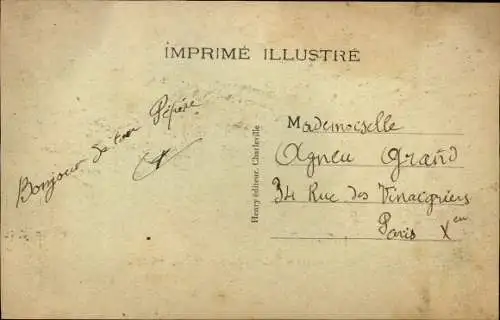 IMPRIMÉ ILLUSTRÉ
Bonjour de ton Pépère
Henry éditeur, Charleville
Mademoiselle
Agneu Grand
34 Rue des Vinaigriers
Paris Xem